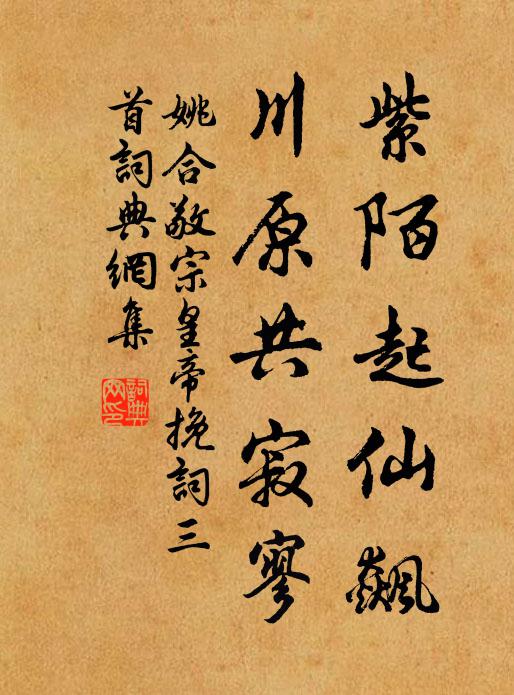 紫陌起仙飙
川原共寂寥
姚合敬宗皇帝挽詞三
首詞典網集
詞典網印